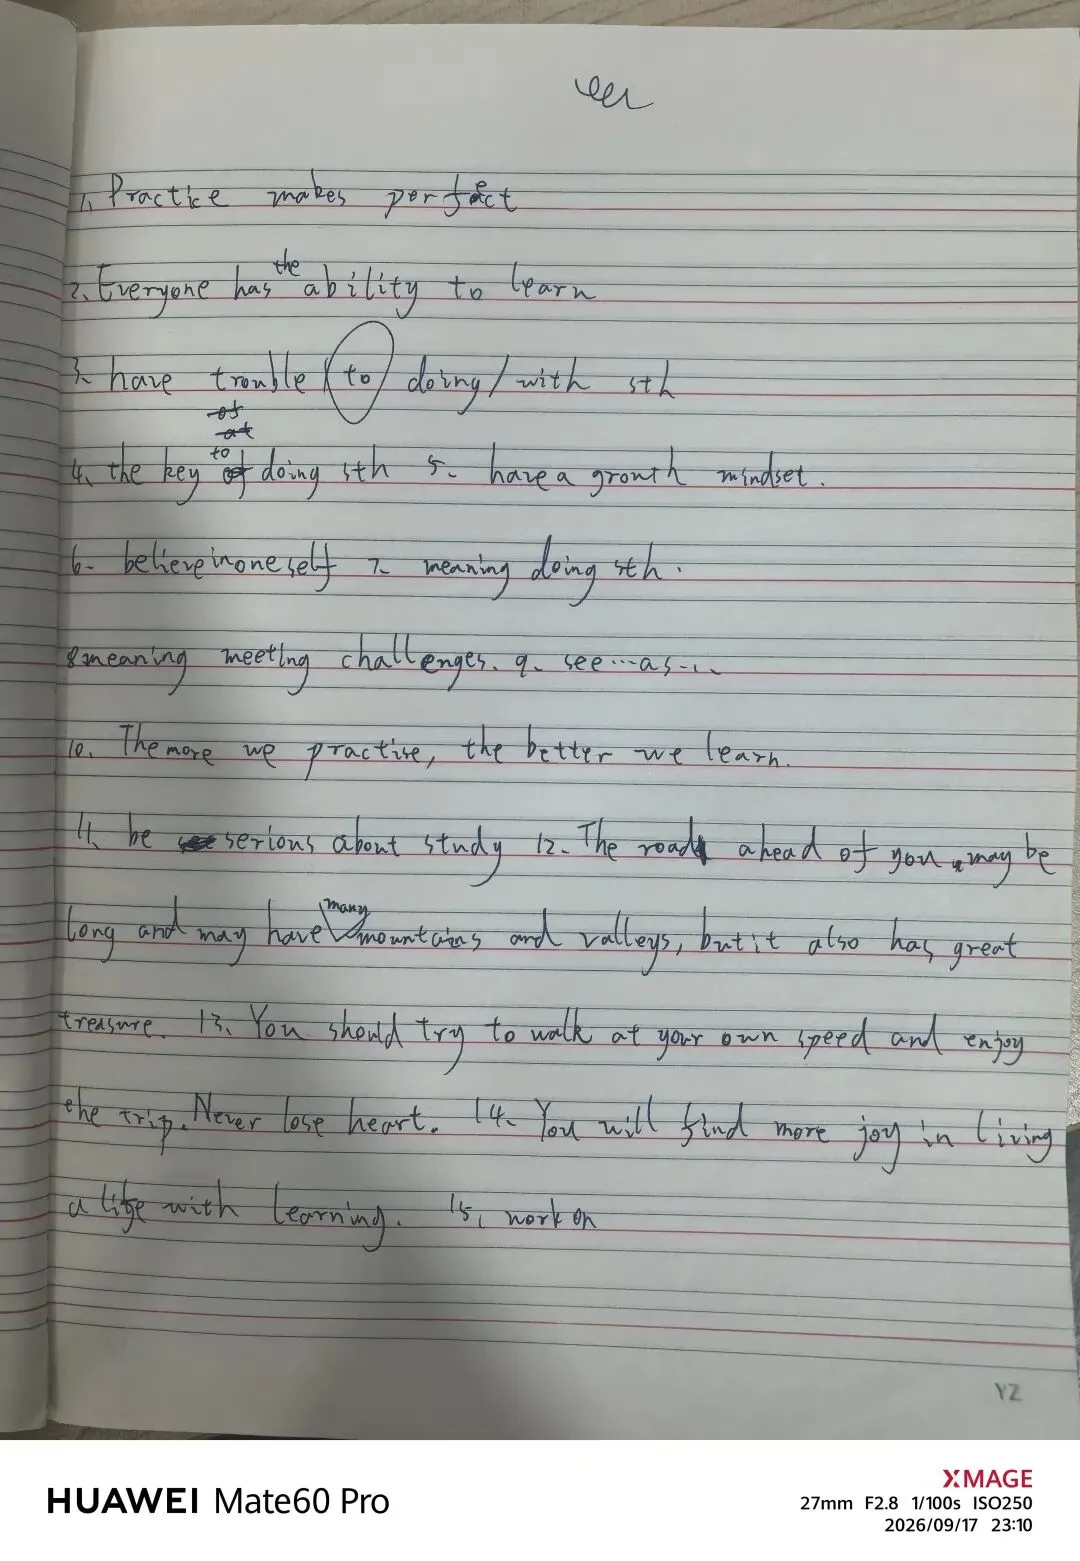 1. Practice makes perfect
2. Everyone has the ability to learn
3. have trouble (to) doing / with sth
4. the key to doing sth 5. have a growth mindset.
6. believe in oneself 7. meaning doing sth.
8 meaning meeting challenges. 9. see...as...
10. The more we practise, the better we learn.
11. be serious about study 12. The road ahead of you may be
long and may have many mountains and valleys, but it also has great
treasure. 13. You should try to walk at your own speed and enjoy
the trip. Never lose heart. 14. You will find more joy in living
a life with learning. 15. work on
YZ
HUAWEI Mate60 Pro
XMAGE
27mm F2.8 1/100s ISO250
2026/09/17 23:10